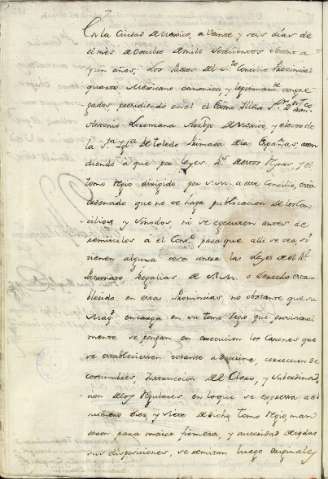 En la Ciudad de Mexico, a veinte y seis dias de
el mes de Octubre de mil setecientos setenta y
un años, Los Señores del Sto. Concilio Provincial
quarto Mexicano canonica, y legitimamte. congre
gados presidiendo en el el Exmo. Illmo. Sr. Dn. Franco. Anto.
Lorenzana Arzbpo. de Mexico, y electo de
la Sta. Yga. de Toledo Primada de las Españas, aten
diendo à que por leyes de estos Reynos, y el
tomo Regio dirigido por S.M. a este Concilio, està
ordenado que no se haga publicacion de los Con
cilios y Sinodos, ni se executen antes de
remitirlos a el Consejo para que alli se vea si
tienen alguna cosa contra las Leyes de el Rl.
Patronazgo Regalias de S.M. o derecho esta
blecido en estas Provincias, no obstante que su
Magd. encarga en su tomo Regio que
mente se pongan en execucion los Canones que
se establecieren tocante a Doctrina, correccion de
costumbres, Instruccion del Clero, y subordina
cion de los Regulares, en lo que se expresa a el
numero diez y siete de dicho tomo Regio, man
daron para maior firmeza, y autoridad de todas
sus disposiciones, se remitan luego originales